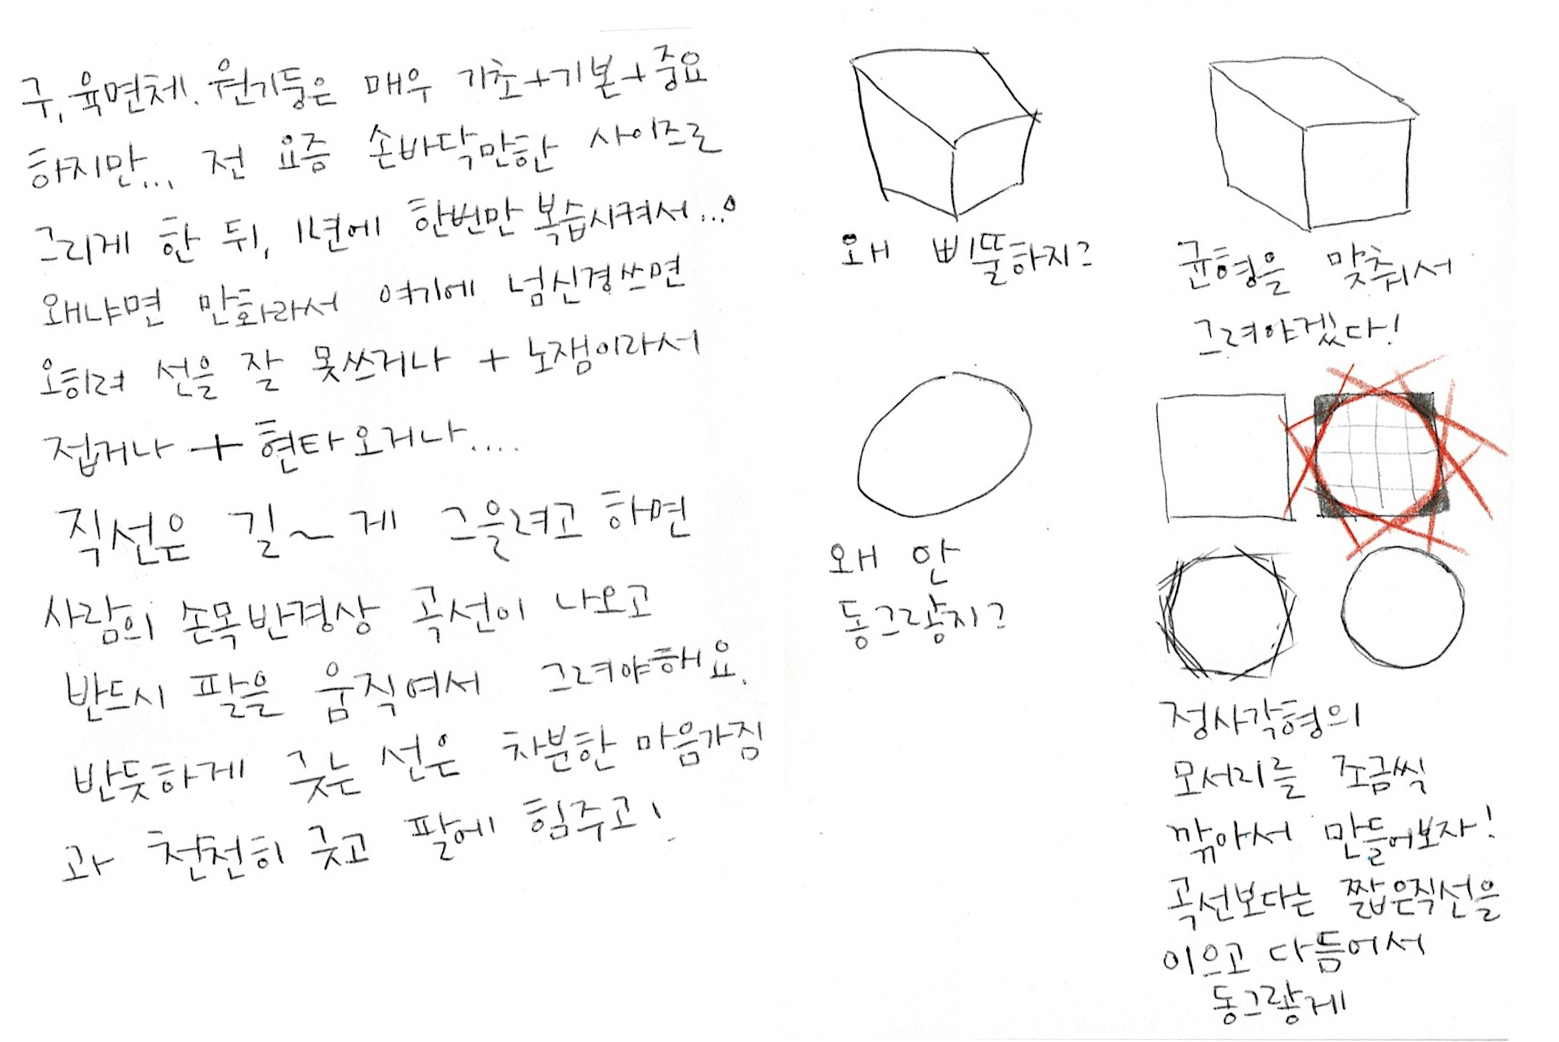 구, 육면체. 원기둥은 매우 기초+기본+중요
하지만... 전 요즘 손바닥만한 사이즈로
그리게 한 뒤, 1년에 한번만 복습시켜서...
왜냐면 만화라서 여기에 넘신경쓰면
오히려 선을 잘 못쓰거나 + 노잼이라서
접거나 + 현타오거나....
직선은 길~게 그을려고 하면
사람의 손목반경상 곡선이 나오고
반드시 팔을 움직여서 그려야해요.
반듯하게 긋는 선은 차분한 마음가짐
과 천천히 긋고 팔에 힘주고!
왜 삐뚤하지?
균형을 맞춰서
그려야겠다!
왜 안
동그랗지?
정사각형의
모서리를 조금씩
깎아서 만들어보자!
곡선보다는 짧은직선을
이으고 다듬어서
동그랗게